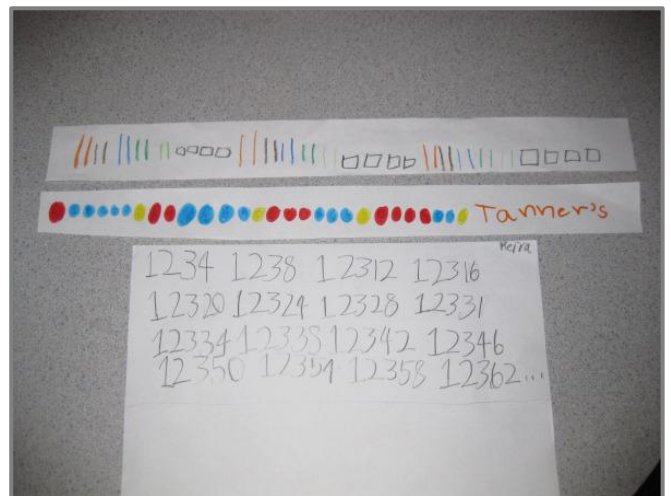 Tanner's
Keira
1234 1238 12312 12316
12320 12324 12328 12331
12334 12338 12342 12346
12350 12354 12358 12362...